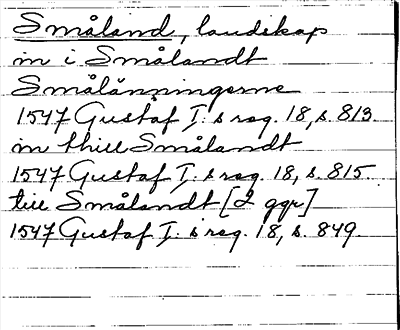 Småland, landskap
in i Smålandt
Smålänningerne
1547 Gustaf I:s reg. 18, s. 813
in thill Smålandt
1547 Gustaf I:s reg. 18, s. 815.
till Smålandt [2 ggr]
1547 Gustaf I:s reg. 18, s. 849.